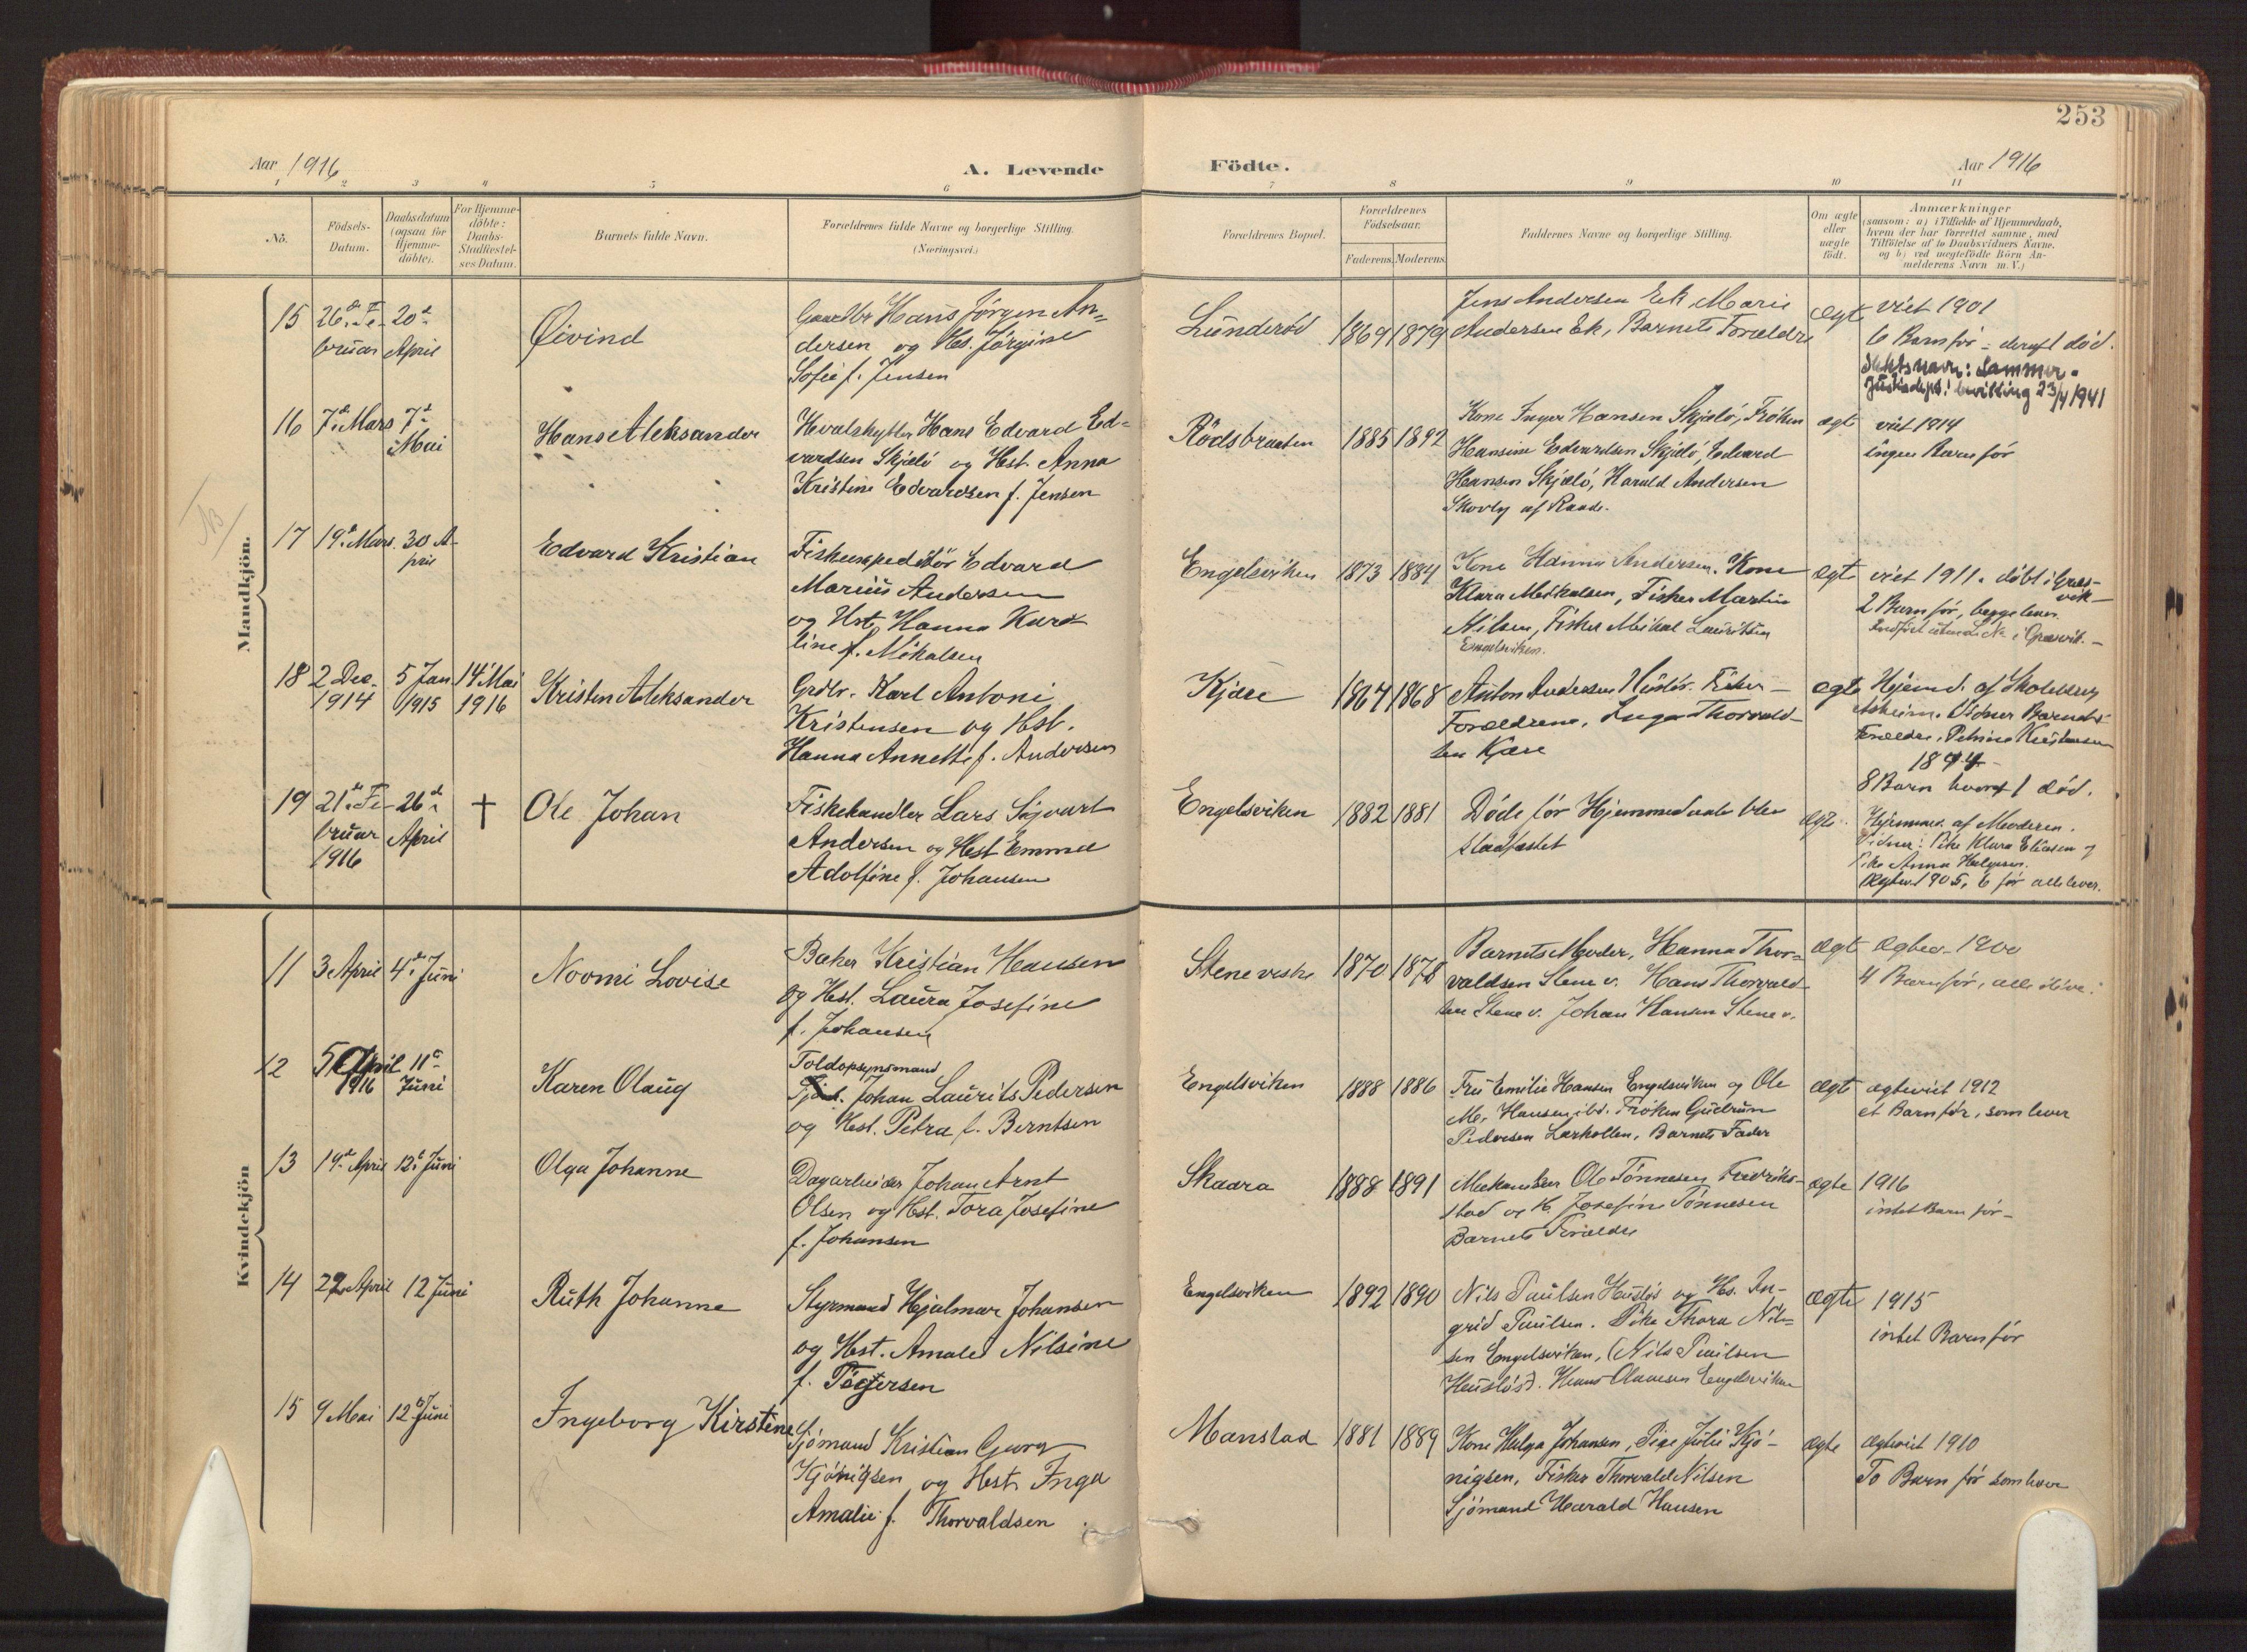 253
Aar 1916
A. Levende
Födte.
Aar 1916
1 2 3 4 5 6 7 8 9 10 11
No.
Födsels-
Datum.
Daabsdatum
(ogsaa for
Hjemme-
döbte).
For Hjemme-
döbte:
Daabs-
Stadfæstel-
ses Datum.
Barnets fulde Navn.
Forældrenes fulde Navne og borgerlige Stilling.
(Næringsvei.)
Forældrenes Bopæl.
Forældrenes
Födselsaar.
Faderens. Moderens.
Faddernes Navne og borgerlige Stilling.
Om ægte
eller
uægte
födt.
Anmærkninger
(saasom: a) i Tilfælde af Hjemmedaab,
hvem der har forrettet samme, med
Tilföielse af to Daabsvidners Navne,
og b) ved uægtefödte Börn An-
melderens Navn m. V.)
Mandkjön.
NB
15
26de Fe-
bruar
20de
April
Øivind
Gaardbr Hans Jörgen An-
dersen og Hs. Jörgine
Sofie f. Jensen
Lunderöd
1869 1879
Jens Andersen Ek, Marie
Andersen Ek, Barnets Forældre
ægte
viet 1901
6 Barn för - deraf 1 död.
16
7de Mars
7de
Mai
Hans Aleksander
Hvalskytter Hans Edvard Ed-
vardsen Skjælö og Hst. Anna
Kristine Edvardsen f. Jensen
Rödsbraaten
1885 1892
Kone Inger Hansen Skjælö, Fröken
Hansine Edvardsen Skjælö, Edvard
Hansen Skjælö, Harald Andersen
Skovly af Raade.
ægt
viet 1914
ingen Barn för
17
19de Mars
30 A-
pril
Edvard Kristian
Fiskeexpeditör Edvard
Marius Andersen
og Hst. Hanna Karo-
line f. Mikalsen
Engelsviken
1873 1884
Kone Hanna Andersen. Kone
Klara Mikalsen, Fisker Martin
Nilsen, Fisker Mikal Lauritsen
Engelsviken.
ægte
viet 1911. döbt i Græs-
vik
2 Barn för, begge lever.
18
2 Dec.
1914
5 Jan
1915
14de Mai
1916
Kristen Aleksander
Grdbr. Karl Antoni
Kristensen og Hst.
Hanna Annette f. Andersen
Kjære
1864 1868
Anton Andersen Huslös. Fisker
Forældrene, Inga Thorvald-
sen Kjære
ægte
Hjemd. af
8 Barn hvoraf 1 död.
19
21de Fe-
bruar
1916
26de
April
†
Ole Johan
Fiskehandler Lars Sigvart
Andersen og Hst Emma
Adolfine f. Johansen
Engelsviken
1882 1881
Döde för Hjemmedaab blev
stadfæstet
ægte
Hjemmed. af Moderen.
Vidner: Pike Klara Eliasen og
Pike Anna Helgesen.
Ægtev. 1905, 6 för alle lever.
Kvindekjön
11
3 April
4de Juni
Noomi Lovise
Baker Kristian Hansen
og Hst. Laura Josefine
f. Johansen
Steneveske
1870 1878
Barnets Moder, Hanna Thor-
valdsen Stene v. Hans Thorvald-
sen Stene v. Johan Hansen Stene v.
ægte
Ægtev. 1900
4 Barn för, alle ilive.
12
5 April
1916
11te
Juni
Karen Olaug
Toldopsynsmand
Johan Laurits Pedersen
og Hst. Petra f. Berntsen
Engelsviken
1888 1886
Fru Emilie Hansen Engelsviken og Ole
M. Hansen ibd. Fröken Gudrun
Pedersen Larkollen, Barnets Fader
ægte
ægteviet 1912
et Barn för, som lever
13
14de April
12te Juni
Olga Johanne
Dagarbeider Johan Arnt
Olsen og Hst. Tora Josefine
f. Johansen
Skaara
1888 1891
Mekaniker Ole Tönnesen Fredriks-
stad og H. Josefine Tönnesen
Barnets Forældre
ægte
1916
intet Barn för
14
22 April
12 Juni
Ruth Johanne
Styrmand Hjalmar Johansen
og Hst. Amalie Nilsine
f. Torgersen
Engelsviken
1892 1890
Nils Paulsen Huslös og Hs. In-
grid Paulsen. Pike Thora Nil-
sen Engelsviken, (Nils Paulsen
Huslös). Hans Olausen Engelsviken
ægte
1915
intet Barn för
15
9 Mai
12te Juni
Ingeborg Kirstine
Sjömand Kristian Georg
Kjönigsen og Hst. Inga
Amalie f. Thorvaldsen
Manstad
1881 1889
Kone Helga Johansen, Pige Julie Kjö-
nigsen, Fisker Thorvald Nilsen
Sjömand Harald Hansen
ægte
ægteviet 1910
To Barn för som lever